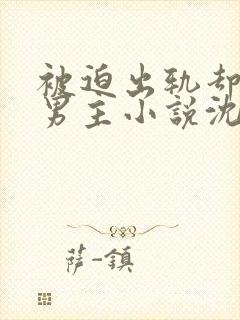 被迫出轨却
男主小說沈
萨-鎮